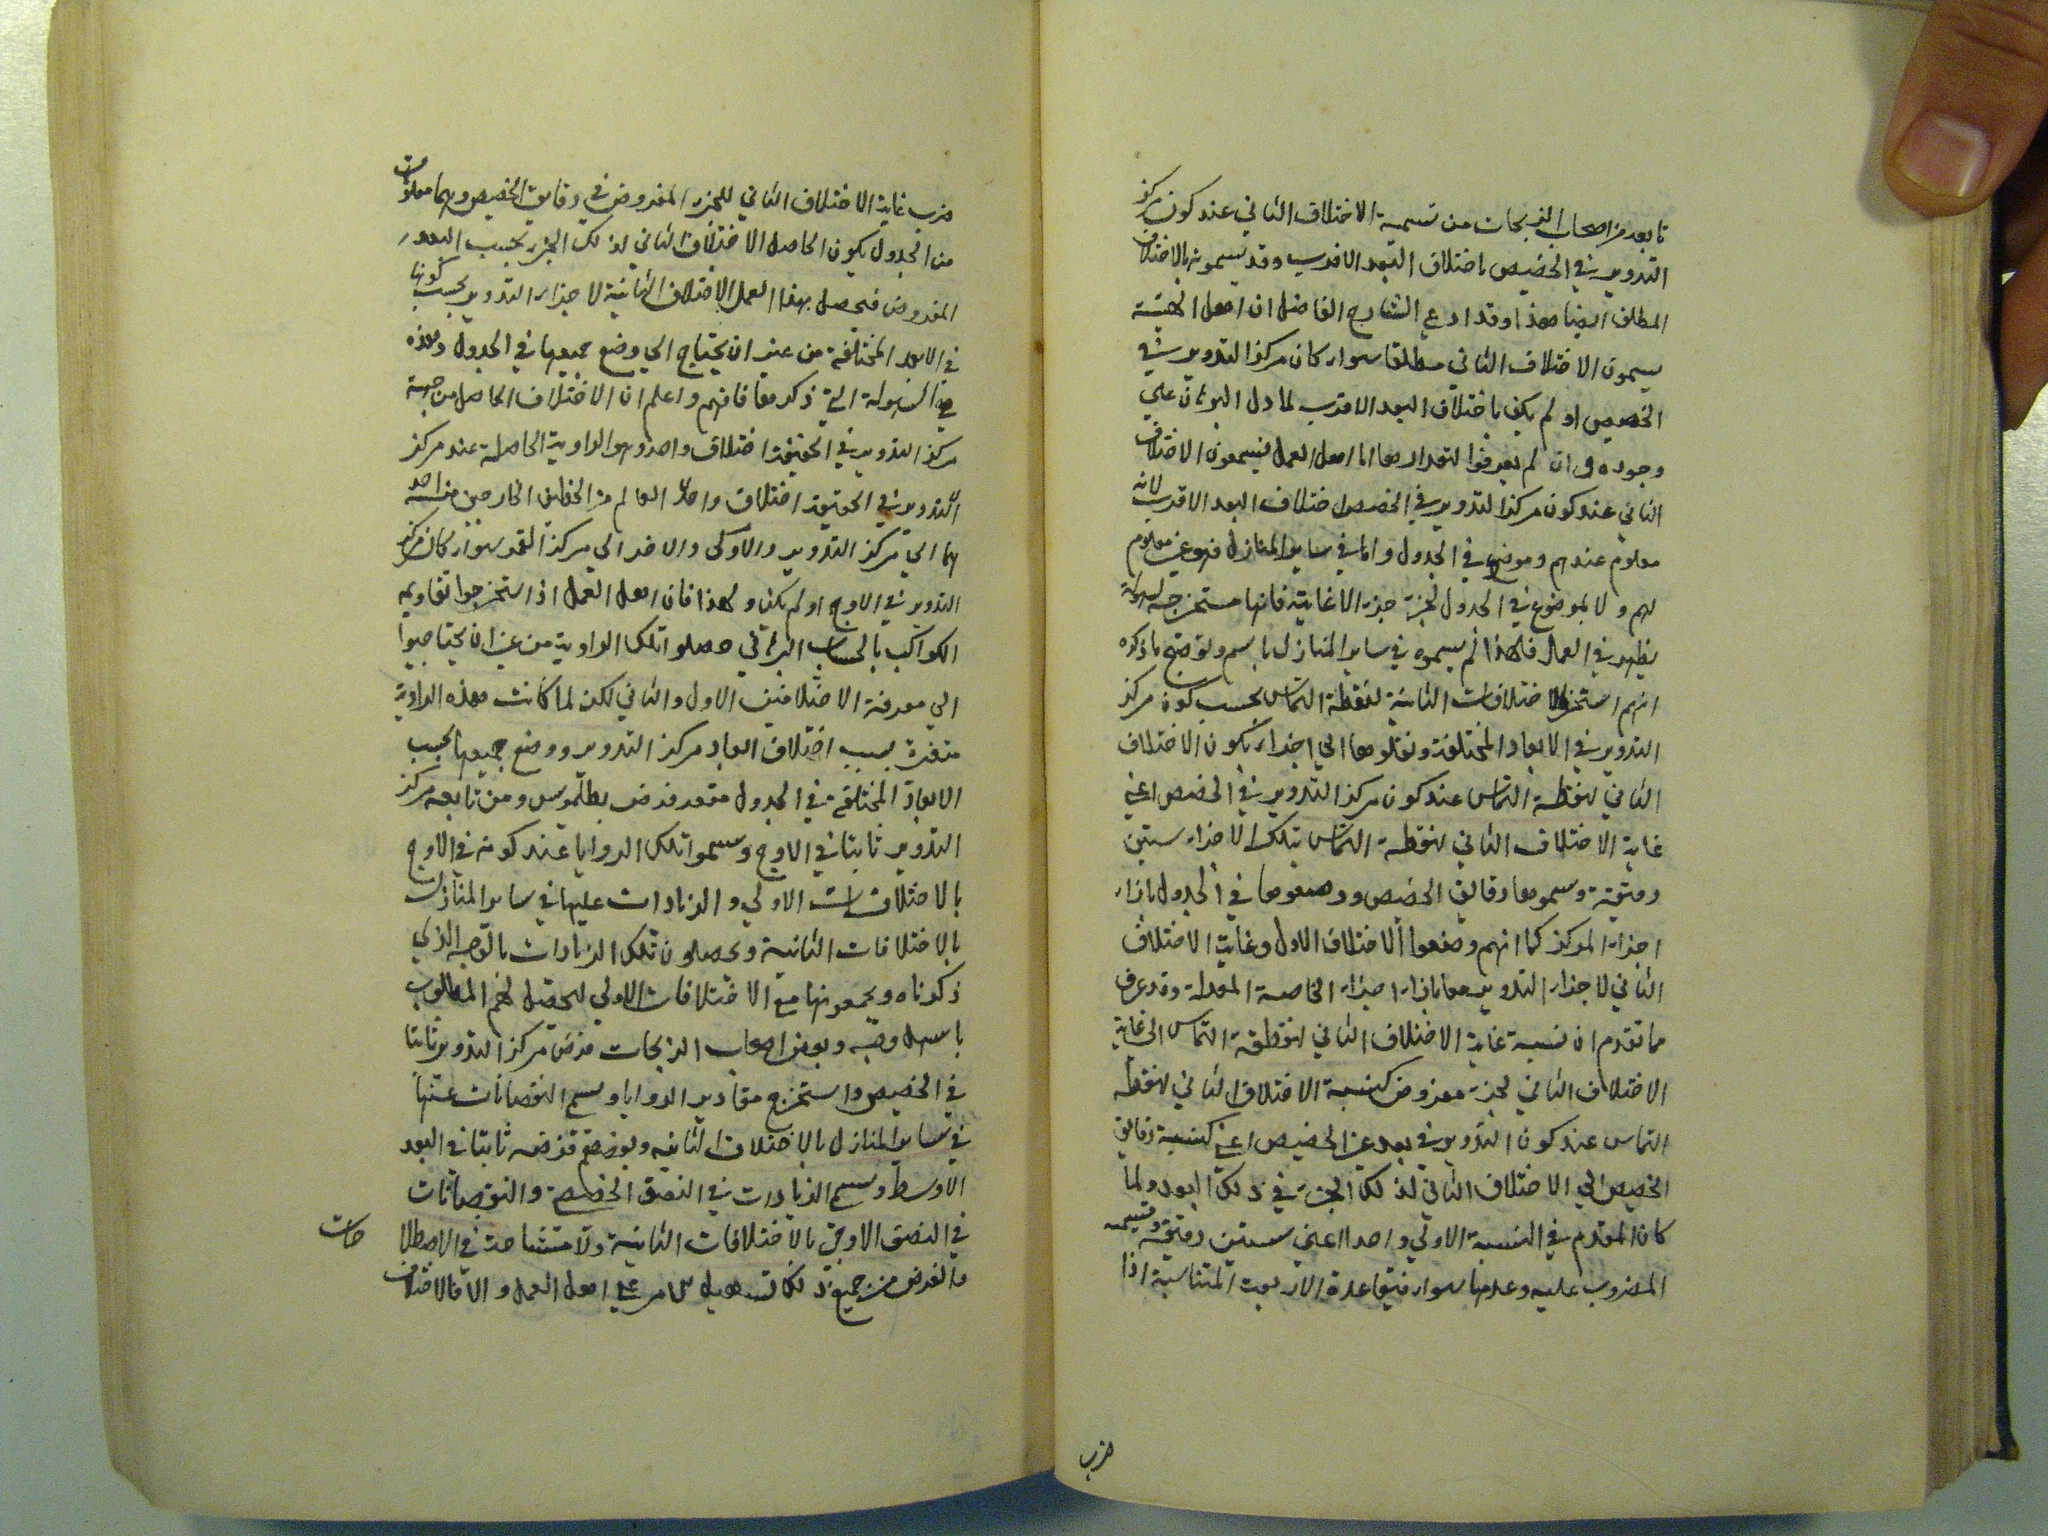 تابعه من اصحاب الزيجات من تسمية الاختلاف الثاني عند كون مركز
التدوير في الحضيض باختلاف البعد الاقرب وقد يسمونه بالاختلاف
المطلق ايضا هذا وقد ادعي الشارح الفاضل ان اهل الهيئة
يسمون الاختلاف الثاني مطلقا سواء كان مركز التدوير في
الحضيض او لم يكن باختلاف البعد الاقرب لما دل البرهان علي
وجوده وان لم يعرفوا لمقدارها اما اهل العمل فيسمون الاختلاف
الثاني عند كون مركز التدوير في الحضيض اختلاف البعد الاقرب لانه
معلوم عندهم وموضوع في الجدول واما في ساير المنازل فهو غير معلوم
لهم ولا بموضوع في الجدول لجزء جزء الا غايته فانها مستخرجة لسهولة
يظهر في العمل فلهذا لم يسموه في ساير المنازل باسم وتوضيح ما ذكره
انهم استخرجوا الاختلافات الثانية لنقطة التماس بحسب كون مركز
التدوير في الابعاد المختلفة ونقلوها الي اجزاء يكون الاختلاف
الثاني لنقطة التماس عند كون مركز التدوير في الحضيض اعني
غاية الاختلاف الثاني لنقطة التماس بتلك الاجزاء ستين
دقيقة وسموها دقايق الحضيض ووضعوها في الجدول بازاء
اجزاء المركز كما انهم وضعوا الاختلاف الاول وغاية الاختلاف
الثاني لاجزاء التدوير معا بازاء اجزاء الخاصة المعدلة وقد عرف
مما تقدم ان نسبة غاية الاختلاف الثاني لنقطة التماس الي غاية
الاختلاف الثاني لجزء مفروض كنسبة الاختلاف الثاني لنقطة
التماس عند كون التدوير في بعد غير الحضيض اعني كنسبة دقايق
الحضيض الي الاختلاف الثاني لذلك الجزء في ذلك البعد ولما
كان المقدم في النسبة الاولي واحدا اعني ستين دقيقة وقسمة
المضروب عليه وعدمها سواء فبقاعدة الاربعة المتناسبة اذا
ضرب
ضرب غاية الاختلاف الثاني للجزء المفروض في دقايق الحضيض وهما معلومت
من الجدول يكون الحاصل الاختلاف الثاني لذلك الجزء بحسب البعد
المفروض فيحصل بهذا العمل الاختلاف الثانية لاجزاء التدوير بحسب كونها
في الابعاد المختلفة من غير ان يحتاج الي وضع جميعها في الجدول وهذه
هي السهولة التي ذكرها فافهم واعلم ان الاختلاف الحاصل من جهة
مركز التدوير في الحقيقة اختلاف واحد وهو الزاوية الحاصلة عند مركز
التدوير في الحقيقة اختلاف واحد العالم من الخطين الخارجين منه احد
هما الي مركز التدوير والاوكي والاخر الي مركز القمر سواء كان مركز
التدوير في الاوج او لم يكن ولهذا فان اهل العمل اذا استخرجوا تقاويم
الكواكب بالحساب البرهاني حصلوا تلك الزاوية من غير ان يحتاجوا
الي معرفة الاختلافين الاول والثاني لكن لما كانت هذه الزاوية
متغيرة بسبب اختلاف ابعاد مركز التدوير ووضع جميعها بحسب
الابعاد المختلفة في الجدول متعذر فرض بطلميوس ومن تابعه مركز
التدوير ثابتا في الاوج وسموا تلك الزوايا عند كونه في الاوج
بالاختلافات الاولي والزيادات عليها في ساير المنازل
بالاختلافات الثانية ويحصلون تلك الزيادات بالوجه الذي
ذكرناه ويجمعونها مع الاختلافات الاولي ليحصل لهم المطلوب
باسهل وجه وبعض اصحاب الزيجات فرض مركز التدوير ثابتا
في الحضيض واستخرج مقادير الزوايا وسمي النقصانات عنها
في ساير المنازل بالاختلافات الثانيه وبعضهم فرضه ثابتا في البعد
الاوسط وسمي الزيادات في النصف الحضيضية والنقصانات
في النصف الاوجي بالاختلافات الثانية ولا مشاحة في الاصطلا
حات
والغرض من جميع ذلك تسهيل الامر علي اهل العمل والا فالاختلاف